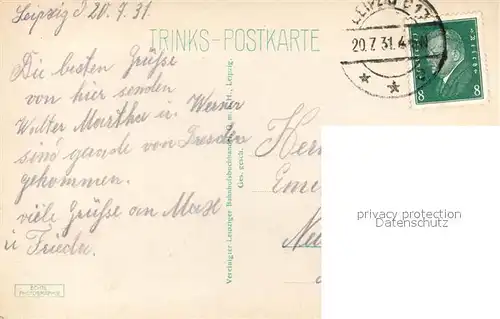 Leipzig d 20.7.31.
TRINKS-POSTKARTE
LEIPZIG C 13
20.7.31.4
8 8
Die besten Grüsse
von hier senden
Walter Martha u. Werner
sind gerade von Dresden
gekommen.
viele Grüsse an Max
u Frieda.
Vereinigter Leipziger Bahnhofsbuchhandel G. m. b. H., Leipzig.
Ges. gesch.
Her
privacy protection
Datenschutz
ECHTE
PHOTOGRAPHIE